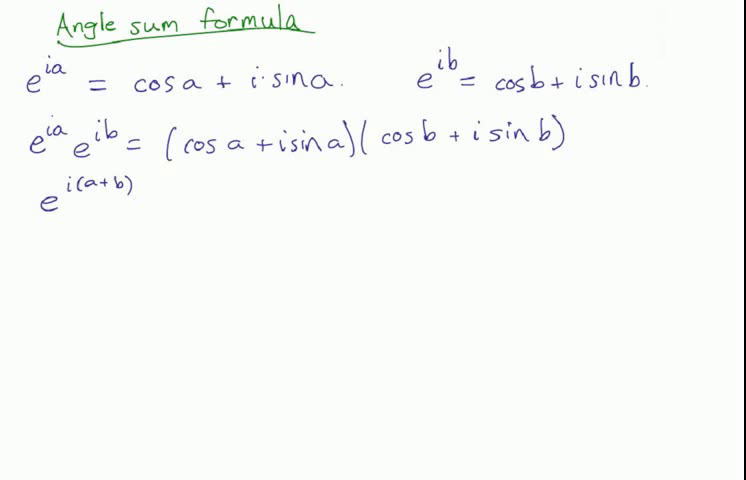 Angle sum formula
e^{ia} = cos a + i·sin a. e^{ib} = cos b + i sin b.
e^{ia} e^{ib} = (cos a + i sin a)(cos b + i sin b)
e^{i(a+b)}